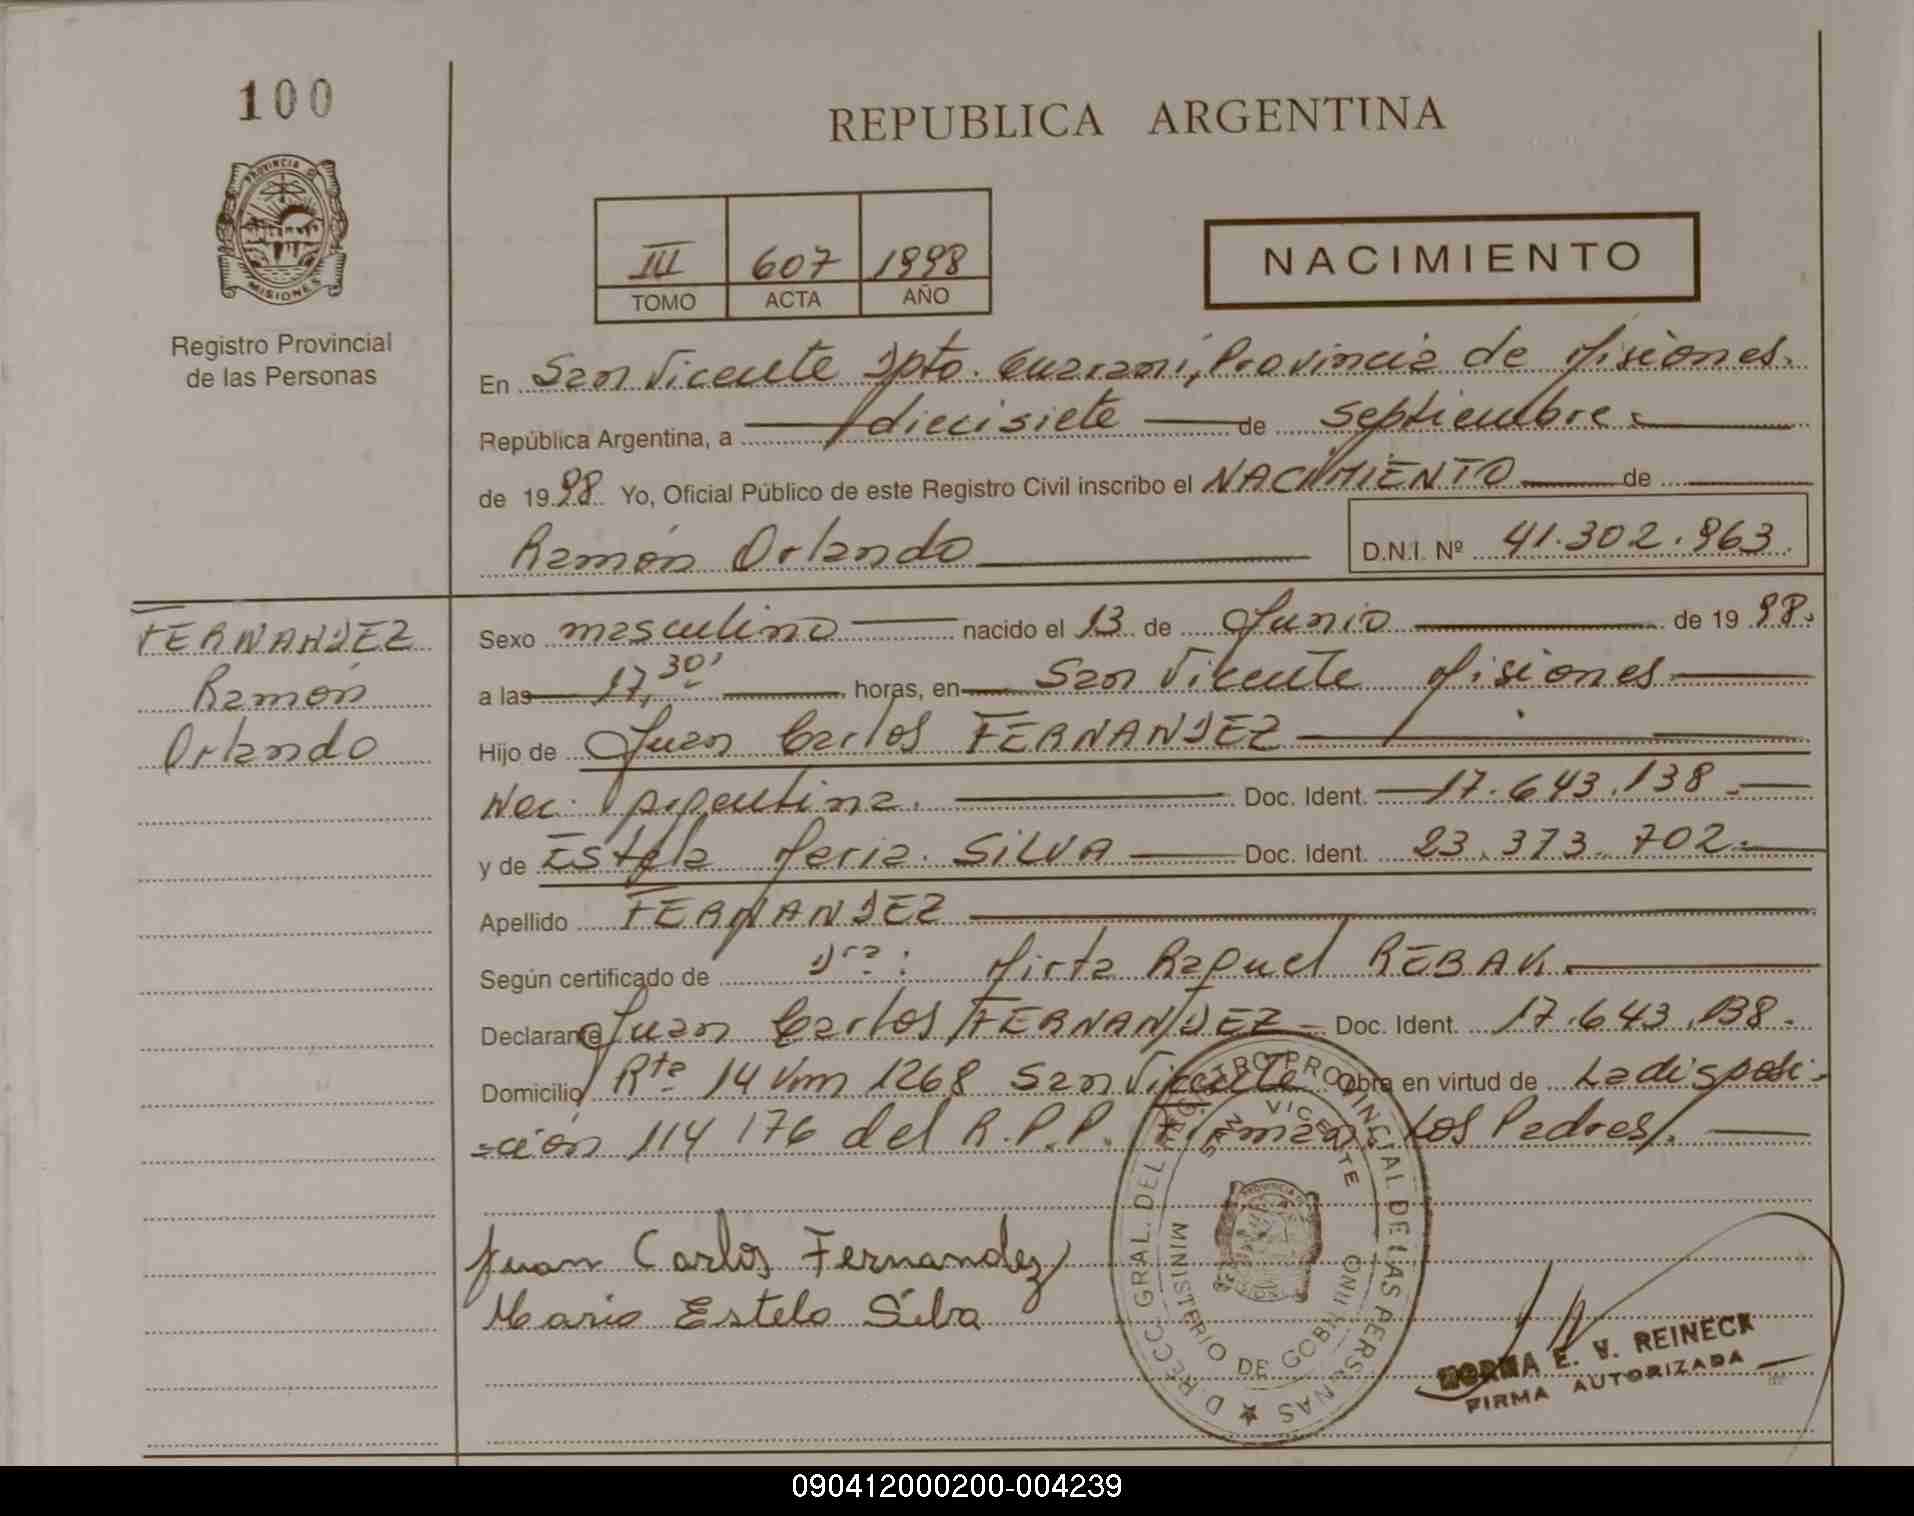 100
REPUBLICA ARGENTINA
PROVINCIA D
MISIONES
Registro Provincial
de las Personas
III 607 1998
TOMO ACTA AÑO
NACIMIENTO
En San Vicente Dpto. Guaraní, Provincia de Misiones.
República Argentina, a diecisiete de septiembre
de 1998 Yo, Oficial Público de este Registro Civil inscribo el NACIMIENTO de
Ramón Orlando
D.N.I. Nº 41.302.963
FERNANDEZ
Ramón
Orlando
Sexo masculino nacido el 13 de Junio de 1998.
a las 17,30' horas, en San Vicente Misiones
Hijo de Juan Carlos FERNANDEZ
Nac: Argentina. Doc. Ident. 17.643.138.-
y de Estela Maria SILVA Doc. Ident. 23.373.702.-
Apellido FERNANDEZ
Según certificado de Dra: Mirta Raquel REBAK.
Declarante Juan Carlos FERNANDEZ Doc. Ident. 17.643.138.
Domicilio Rta 14 Km 1268 San Vicente Obra en virtud de La disposi-
-ción 114/176 del R.P.P. Firman Los Padres.
Juan Carlos Fernandez
Maria Estela Silva
DIRECC. GRAL. DEL REGISTRO PROVINCIAL DE LAS PERSONAS
SAN VICENTE
MINISTERIO DE GOBIERNO
NORMA E. V. REINECK
FIRMA AUTORIZADA
090412000200-004239